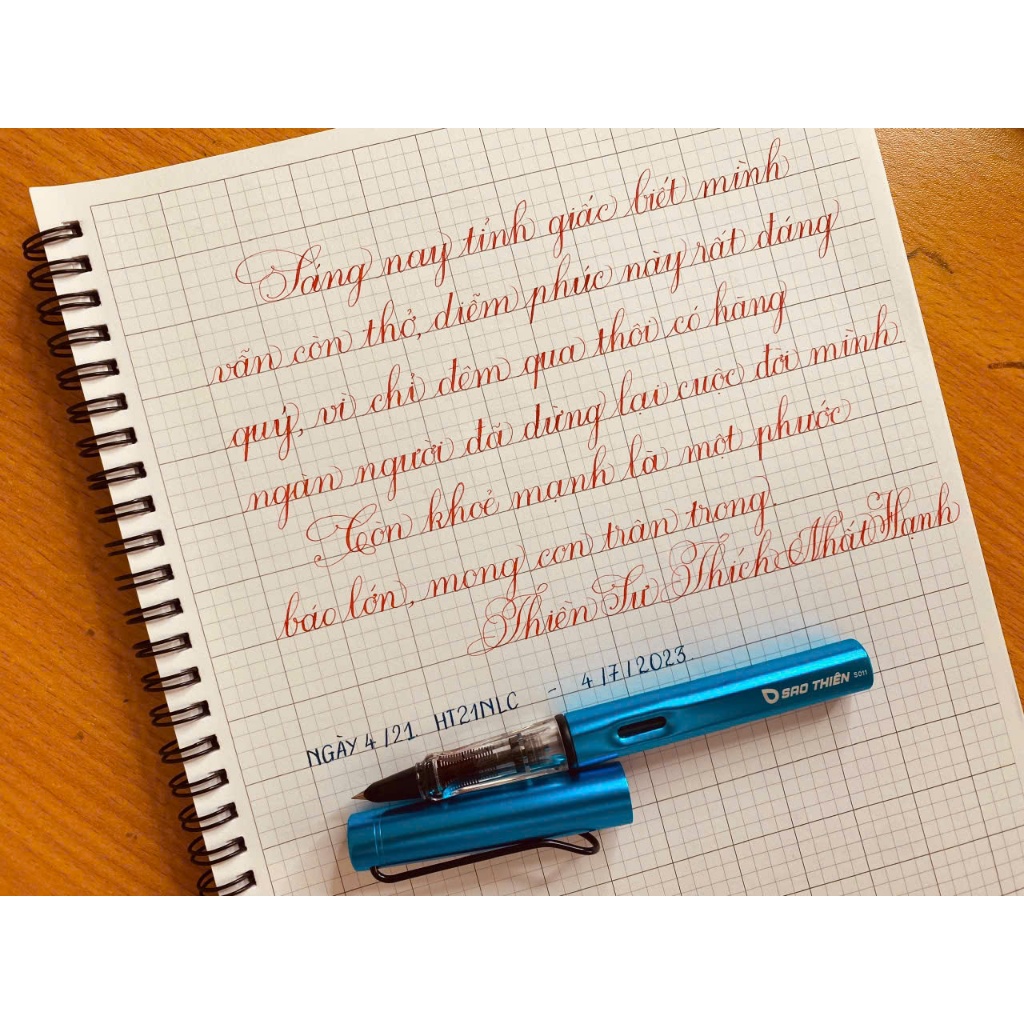 Sáng nay tỉnh giấc biết mình
vẫn còn thở, diễm phúc này rất đáng
quý, vì chỉ đêm qua thôi có hàng
ngàn người đã dừng lại cuộc đời mình
Con khoẻ mạnh là một phước
báo lớn, mong con trân trọng.
Thiền Sư Thích Nhất Hạnh
NGÀY 4/21. HT21NLC - 4/7/2023.
SAO THIÊN 3011